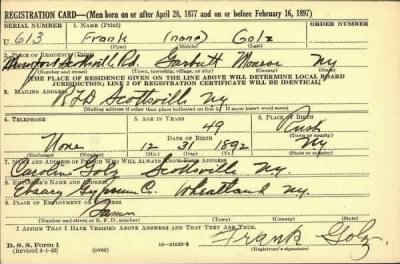 REGISTRATION CARD—(Men born on or after April 28, 1877 and on or before February 16, 1897)
SERIAL NUMBER 1. NAME (Print) ORDER NUMBER
U 613 Frank (none) Golz
(First) (Middle) (Last)
2. PLACE OF RESIDENCE (Print)
Mumford Scottsville Rd. Garbutt Monroe Ny
(Number and street) (Town, township, village, or city) (County) (State)
[THE PLACE OF RESIDENCE GIVEN ON THE LINE ABOVE WILL DETERMINE LOCAL BOARD
JURISDICTION; LINE 2 OF REGISTRATION CERTIFICATE WILL BE IDENTICAL]
3. MAILING ADDRESS
RFD Scottsville Ny
[Mailing address if other than place indicated on line 2. If same insert word same]
4. TELEPHONE 5. AGE IN YEARS 6. PLACE OF BIRTH
49 Rush
DATE OF BIRTH (Town or county)
None 12 31 1892 Ny
(Exchange) (Number) (Mo.) (Day) (Yr.) (State or country)
7. NAME AND ADDRESS OF PERSON WHO WILL ALWAYS KNOW YOUR ADDRESS
Caroline Golz Scottsville Ny.
8. EMPLOYER'S NAME AND ADDRESS
Ebsary Gypsum Co. Wheatland Ny.
9. PLACE OF EMPLOYMENT OR BUSINESS
Same
(Number and street or R. F. D. number) (Town) (County) (State)
I AFFIRM THAT I HAVE VERIFIED ABOVE ANSWERS AND THAT THEY ARE TRUE.
D. S. S. Form 1
(Revised 4-1-42) (over) 16—21630-2 Frank Golz
(Registrant's signature)